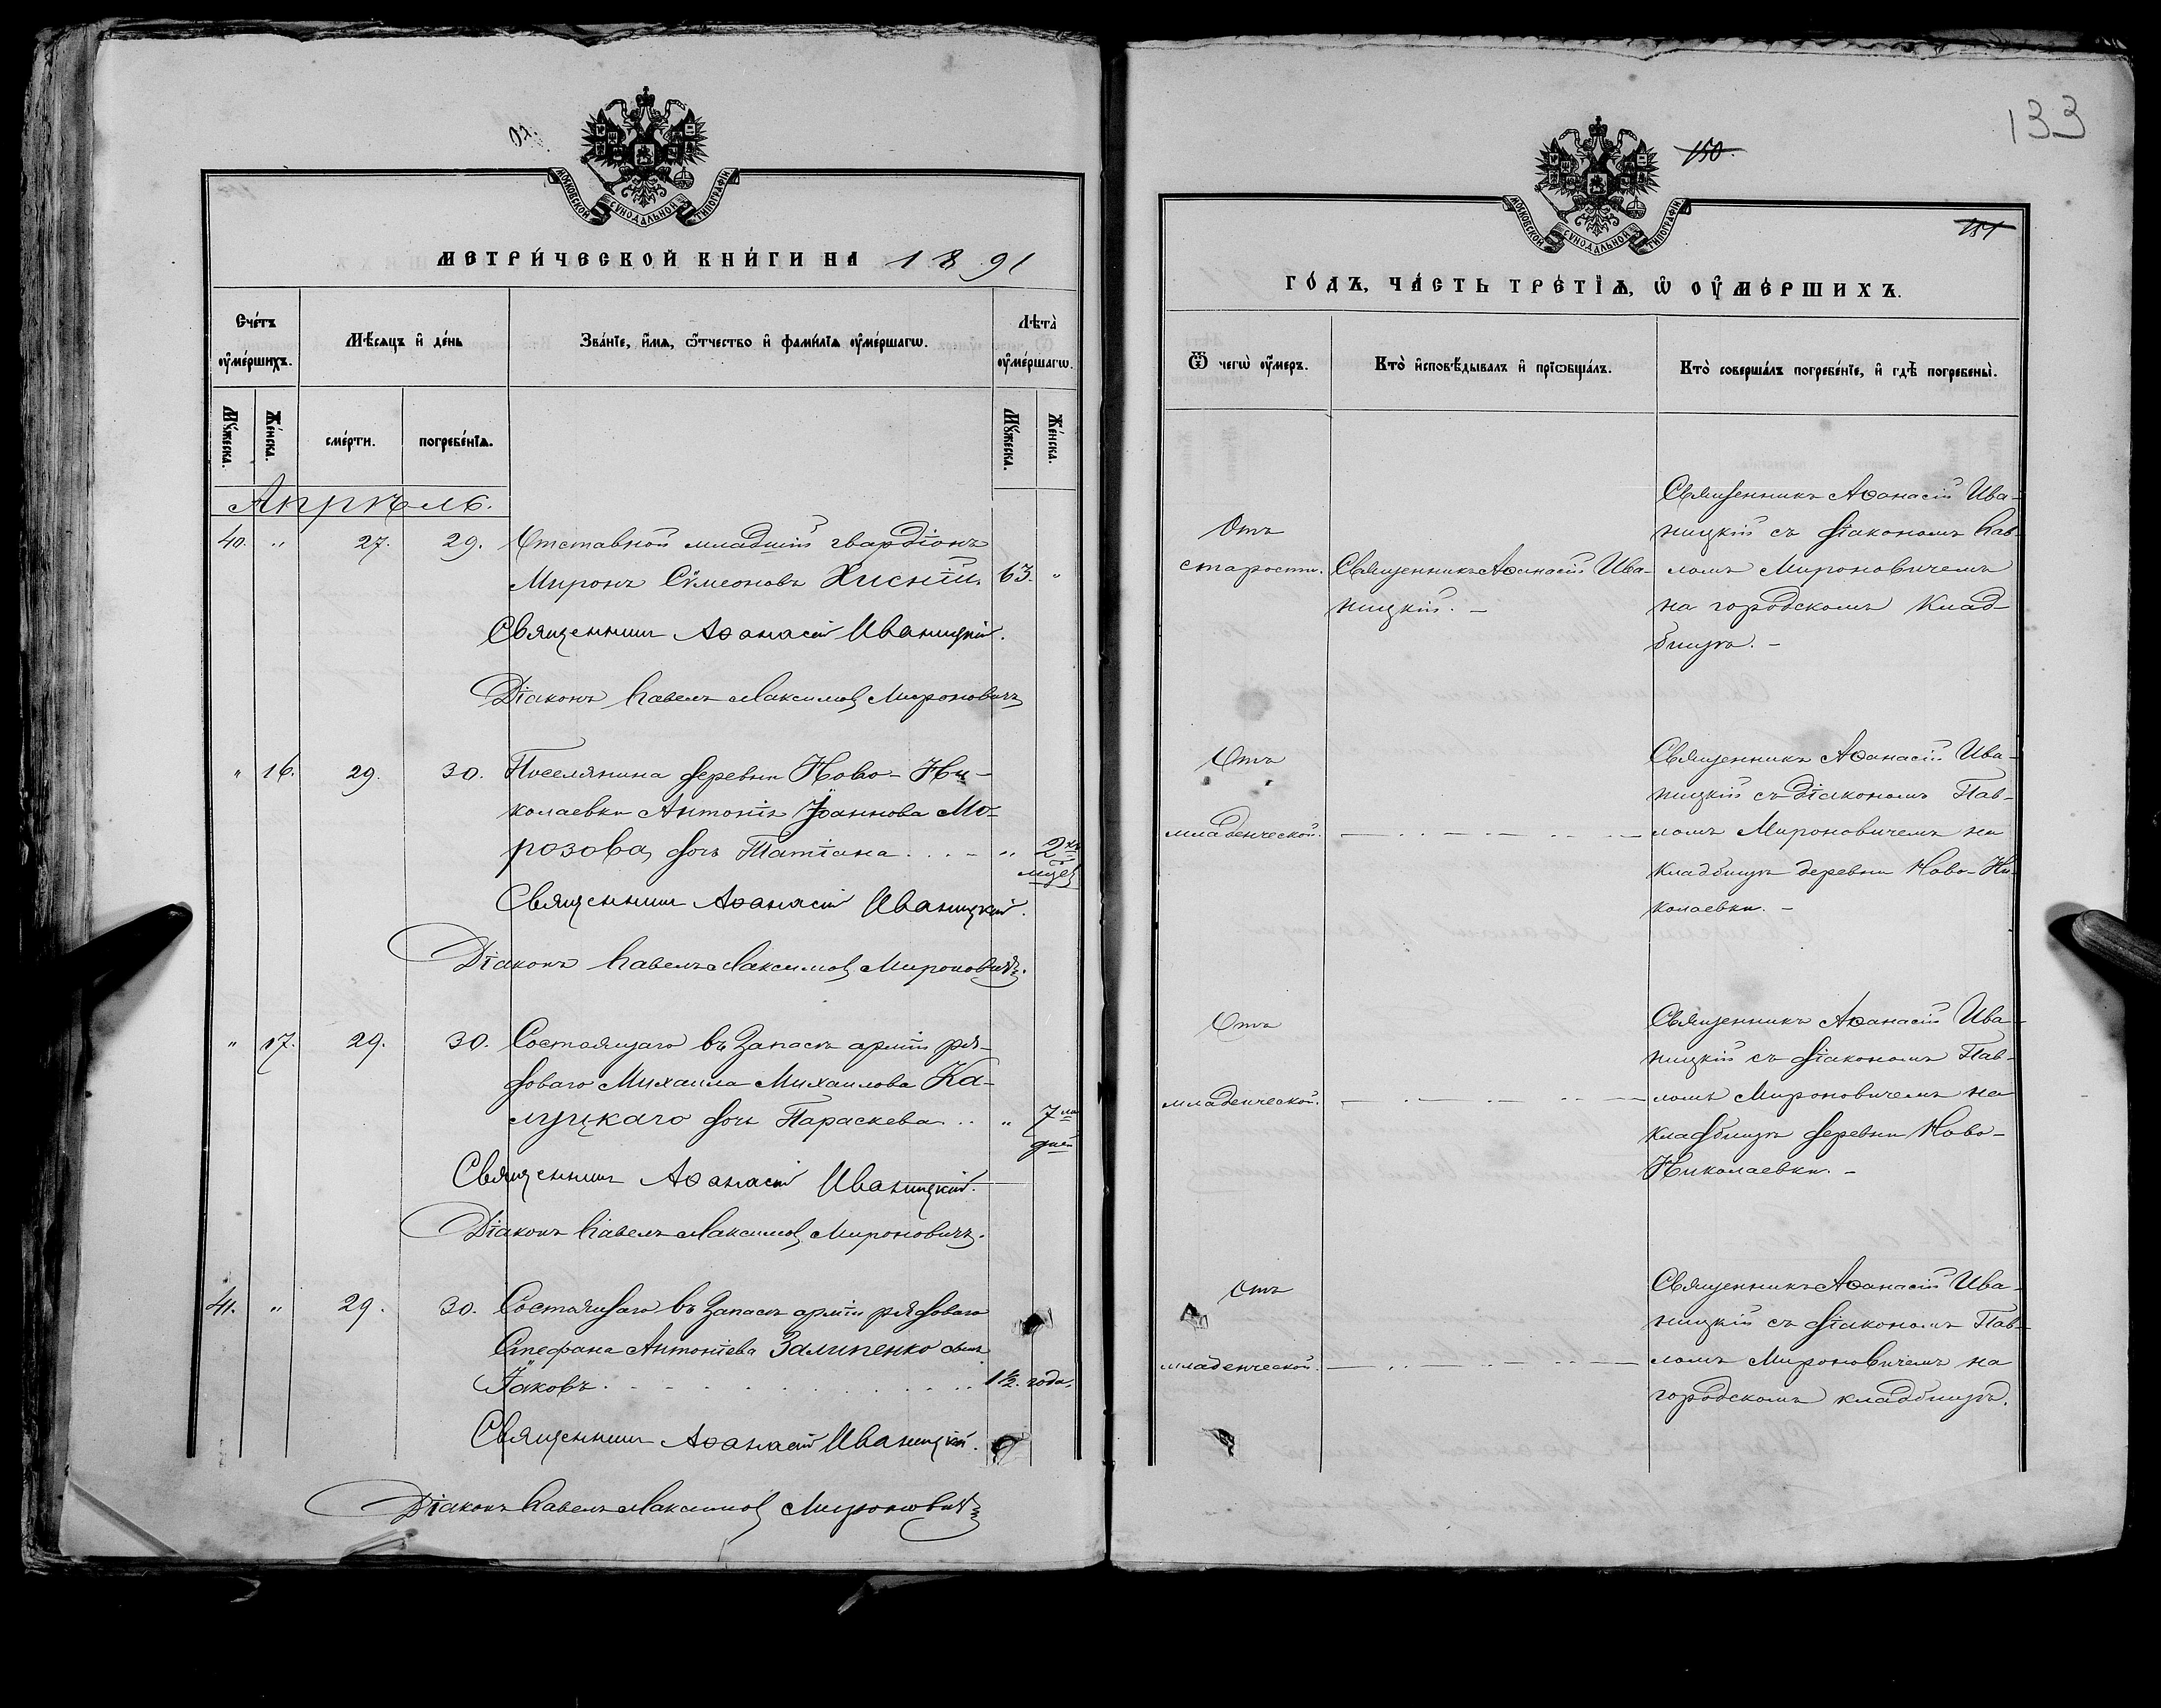 133
150.
151
МОСКОВСКОЙ СѴНОДАЛЬНОЙ ТИПОГРАФІИ
МЕТРИ́ЧЕСКОЙ КНИ́ГИ НА 1891
Сче́тъ ᲂу҆ме́ршихъ.
Мѣ́сяцъ и҆ де́нь
Зва́нїе, и҆́мѧ, ѻ҆́тчество и҆ фами́лїѧ ᲂу҆ме́ршагѡ.
Лѣта̀ ᲂу҆ме́ршагѡ.
Мꙋ́жеска.
Же́нска.
сме́рти.
погребе́нїѧ.
Мꙋ́жеска.
Же́нска.
Апрѣль.
40. " 27. 29. Отставной младшій гвардіонъ
Миронъ Сѵмеоновъ Хисній 63. "
Священникъ Аѳанасій Иваницкій.
Діаконъ Павелъ Максимов Мироновичъ
" 16. 29. 30. Поселянина деревни Ново-Ни-
колаевки Антонія Іоаннова Мо-
розова дочь Татіана . . . – " 2хъ
мцев
Священникъ Аѳанасій Иваницкій.
Діаконъ Павелъ Максимов Мироновичъ.
" 17. 29. 30. Состоящаго въ Запасѣ арміи ря-
доваго Михаила Михаилова Ка-
луцкаго дочь Параскева . . " 7ми
дней
Священникъ Аѳанасій Иваницкій.
Діаконъ Павелъ Максимов Мироновичъ.
41. " 29. 30. Состоящаго въ Запасѣ арміи рядоваго
Стефана Антоніева Залипенко сынъ
Іаковъ. . . . . . . . . . 1½ года.
Священникъ Аѳанасій Иваницкій.
Діаконъ Павелъ Максимов Мироновичъ
МОСКОВСКОЙ СѴНОДАЛЬНОЙ ТИПОГРАФІИ
ГО́ДЪ, ЧА́СТЬ ТРЕ́ТЇѦ, Ѡ҆ ОУ҆МЕ́РШИХЪ.
Ѿ чегѡ̀ ᲂу҆́меръ.
Кто̀ и҆сповѣ́дывалъ и҆ прїѡбща́лъ.
Кто̀ соверша́лъ погребе́нїе, и҆ гдѣ̀ погребены̀.
Отъ
старости.
Священникъ Аѳанасій Ива-
ницкій. –
Священникъ Аѳанасій Ива-
ницкій съ діакономъ Пав-
ломъ Мироновичемъ
на городскомъ клад-
бищѣ. –
Отъ
младенческой. – . . – . . –
Священникъ Аѳанасій Ива-
ницкій съ діакономъ Пав-
ломъ Мироновичемъ на
кладбищѣ деревни Ново-Ни-
колаевки. –
Отъ
младенческой. – . – . . –
Священникъ Аѳанасій Ива-
ницкій съ діакономъ Пав-
ломъ Мироновичемъ на
кладбищѣ деревни Ново-
Николаевки. –
Отъ
младенческой. – . . – . . –
Священникъ Аѳанасій Ива-
ницкій съ діакономъ Пав-
ломъ Мироновичемъ на
городскомъ кладбищѣ.